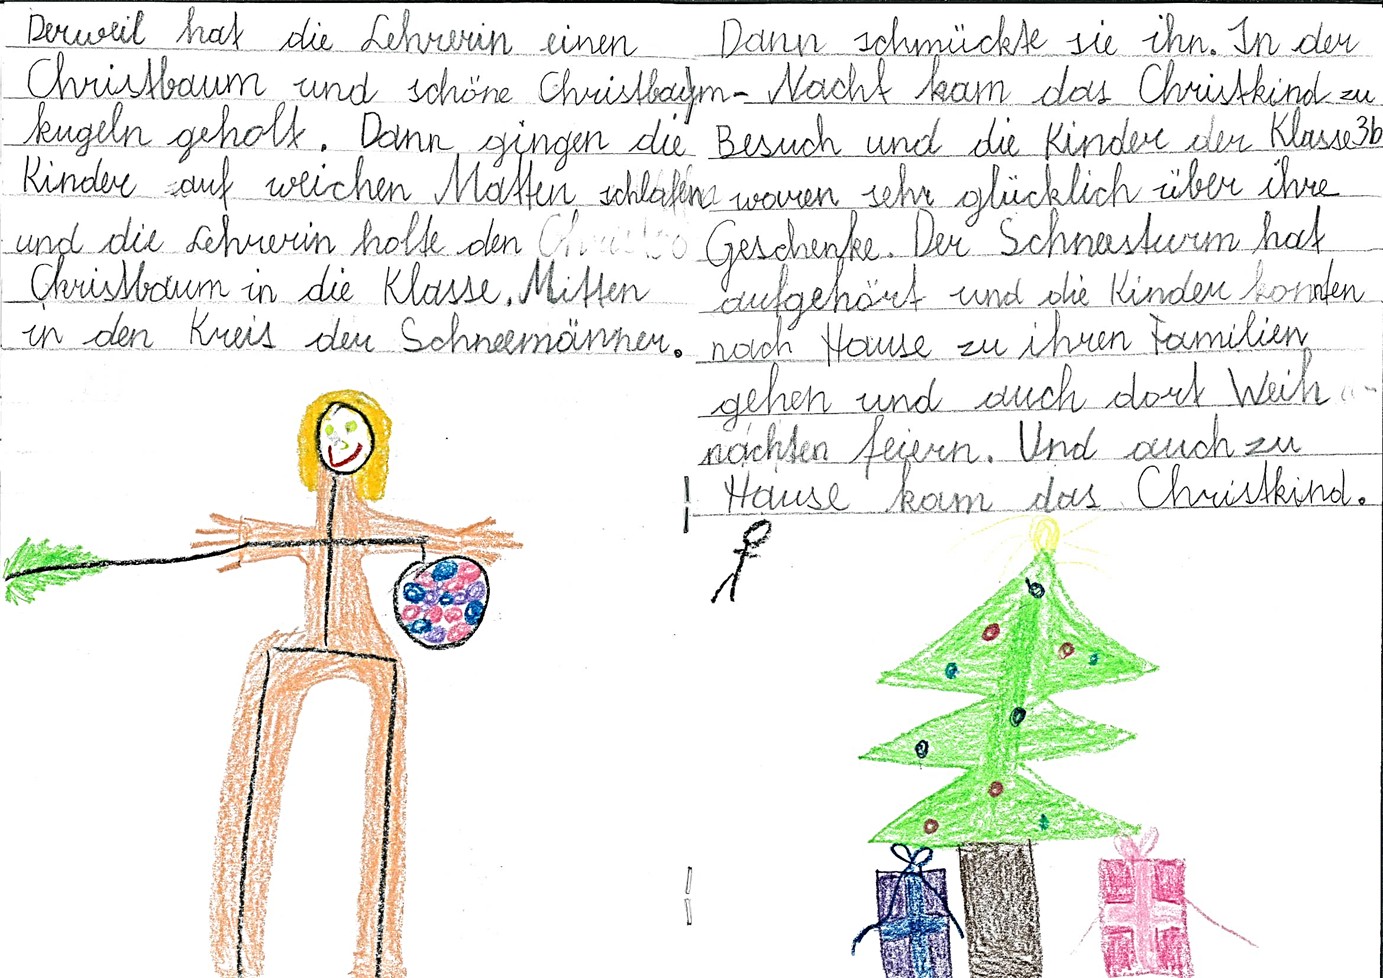 Derweil hat die Lehrerin einen
Christbaum und schöne Christbaum-
kugeln geholt. Dann gingen die
Kinder auf weichen Matten schlafen
und die Lehrerin holte den
Christbaum in die Klasse. Mitten
in den Kreis der Schneemänner.
Dann schmückte sie ihn. In der
Nacht kam das Christkind zu
Besuch und die Kinder der Klasse 3b
waren sehr glücklich über ihre
Geschenke. Der Schneesturm hat
aufgehört und die Kinder konnten
nach Hause zu ihren Familien
gehen und auch dort Weih
nachten feiern. Und auch zu
Hause kam das Christkind.